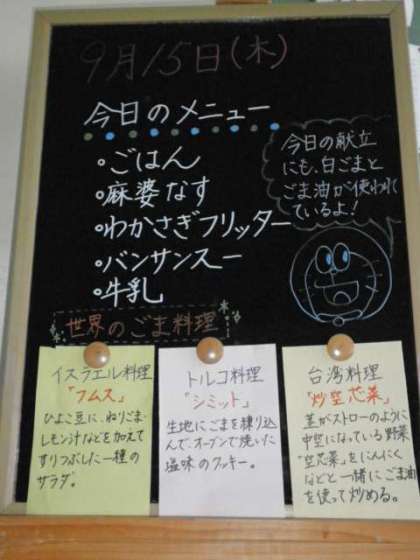 9月15日(木)
今日のメニュー
・ごはん
・麻婆なす
・わかさぎフリッター
・バンサンスー
・牛乳
今日の献立
にも、白ごまと
ごま油が使われ
ているよ!
世界のごま料理
イスラエル料理
「フムス」
ひよこ豆に、ねりごま・
レモン汁などを加えて
すりつぶした一種の
サラダ。
トルコ料理
「シミット」
生地にごまを練り込
んで、オーブンで焼いた
塩味のクッキー。
台湾料理
「炒空芯菜」
茎がストローのように
中空になっている野菜
"空芯菜"をにんにく
などと一緒にごま油
を使って炒める。